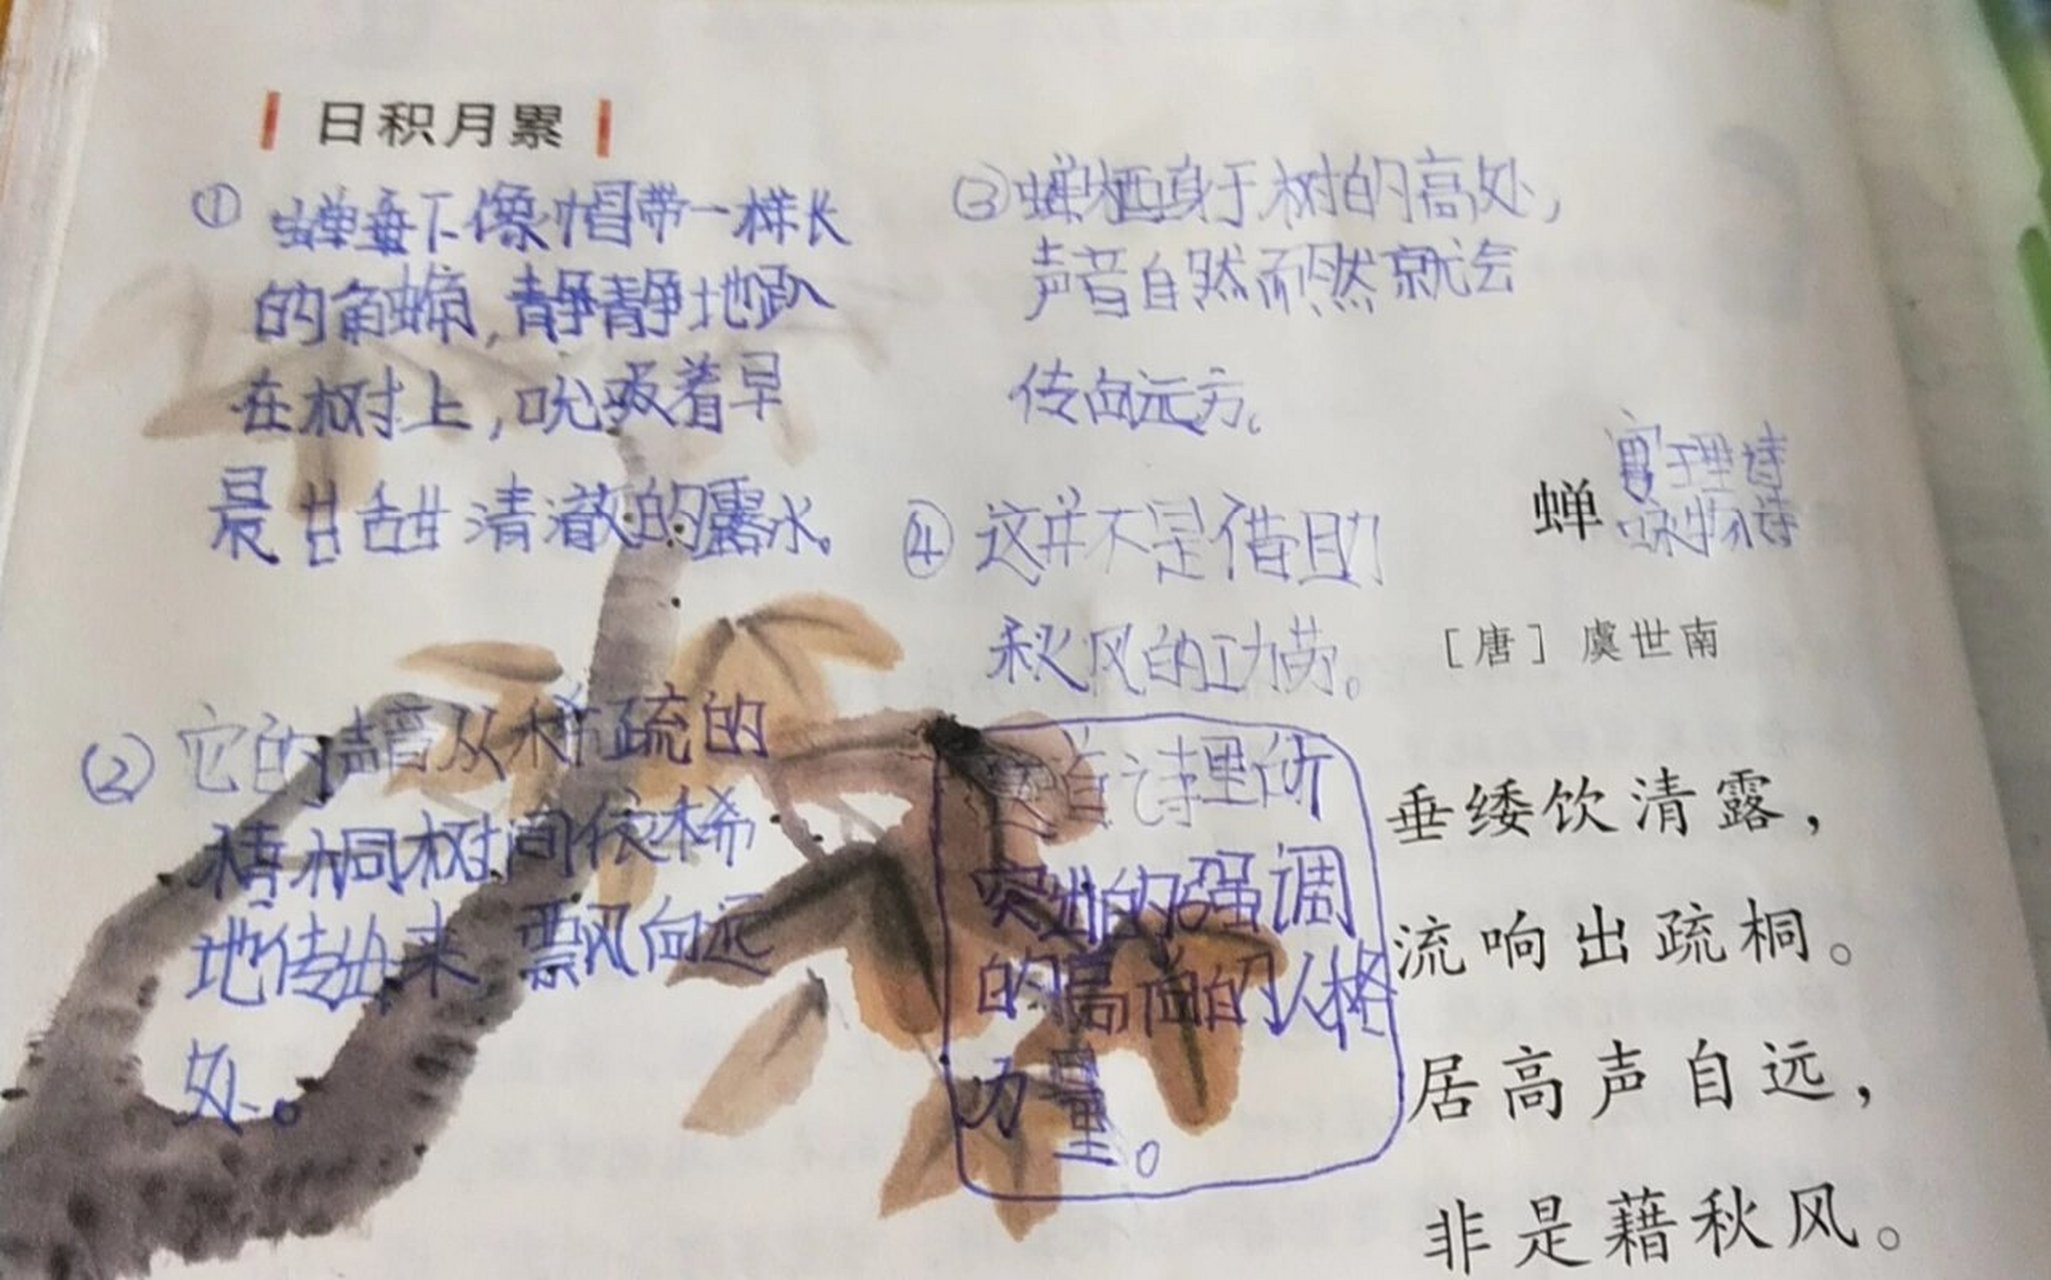 日积月累
① 蝉垂下像帽带一样长
的角触角,静静地趴
在树上,吮吸着早
晨甘甜清澈的露水。
② 它的声音从稀疏的
梧桐树间依稀
地传出来 飘向远
处。
③ 蝉栖身于树的高处,
声音自然而然就会
传向远方。
④ 这并不是借助
秋风的功劳。
首诗里所
突出的强调
的高尚的人格
力量。
蝉
寓理诗
咏物诗
［唐］虞世南
垂緌饮清露，
流响出疏桐。
居高声自远，
非是藉秋风。